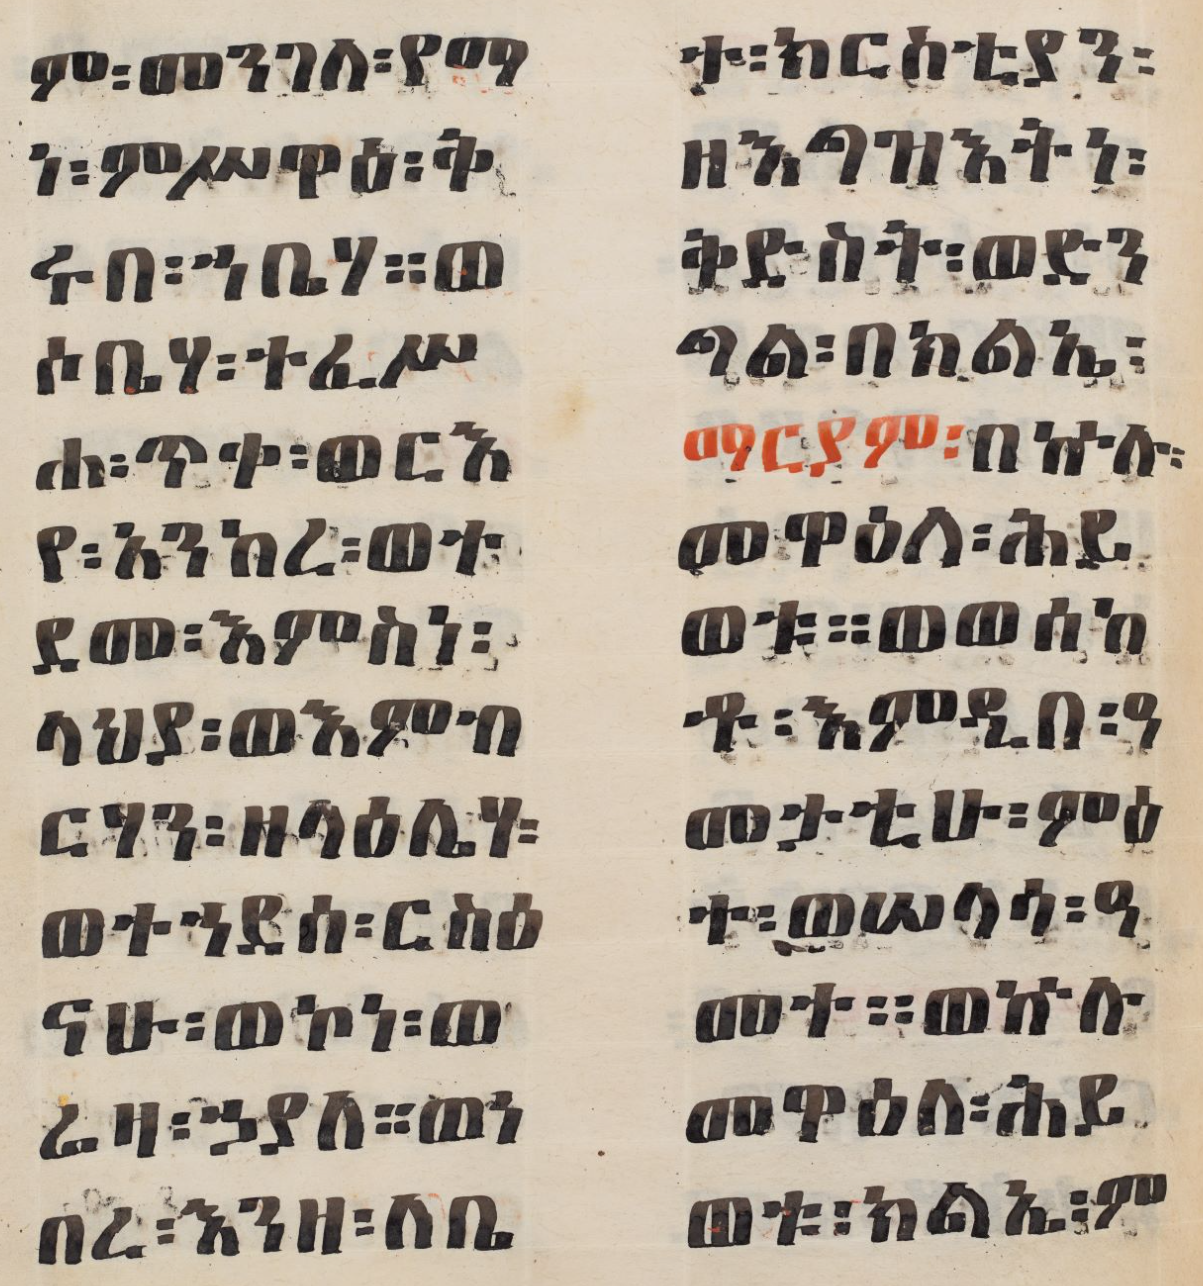 ም፡መንገለ፡የማ
ነ፡ምሥዋዕ፡ቅ
ሩበ፡ኀቤሃ።ወ
ሶቤሃ፡ተፈሥ
ሐ፡ጥቀ፡ወርእ
የ፡አንከረ፡ወተ
ደመ፡እምስነ፡
ላህያ፡ወእምብ
ርሃን፡ዘላዕሌሃ፡
ወተኀደሰ፡ርስዕ
ናሁ፡ወኮነ፡ወ
ሬዛ፡ኃያለ።ወነ
በረ፡እንዘ፡ለቤ
ተ፡ክርስቲያን፡
ዘእግዝእትነ፡
ቅድስት፡ወድን
ግል፡በክልኤ፡
ማርያም፡በኵሉ፡
መዋዕለ፡ሕይ
ወቱ።ወወሰከ
ቶ፡እምዲበ፡ዓ
መታቲሁ፡ምዕ
ተ፡ወሠላሳ፡ዓ
መተ።ወኵሉ
መዋዕለ፡ሕይ
ወቱ፡ክልኤ፡ም